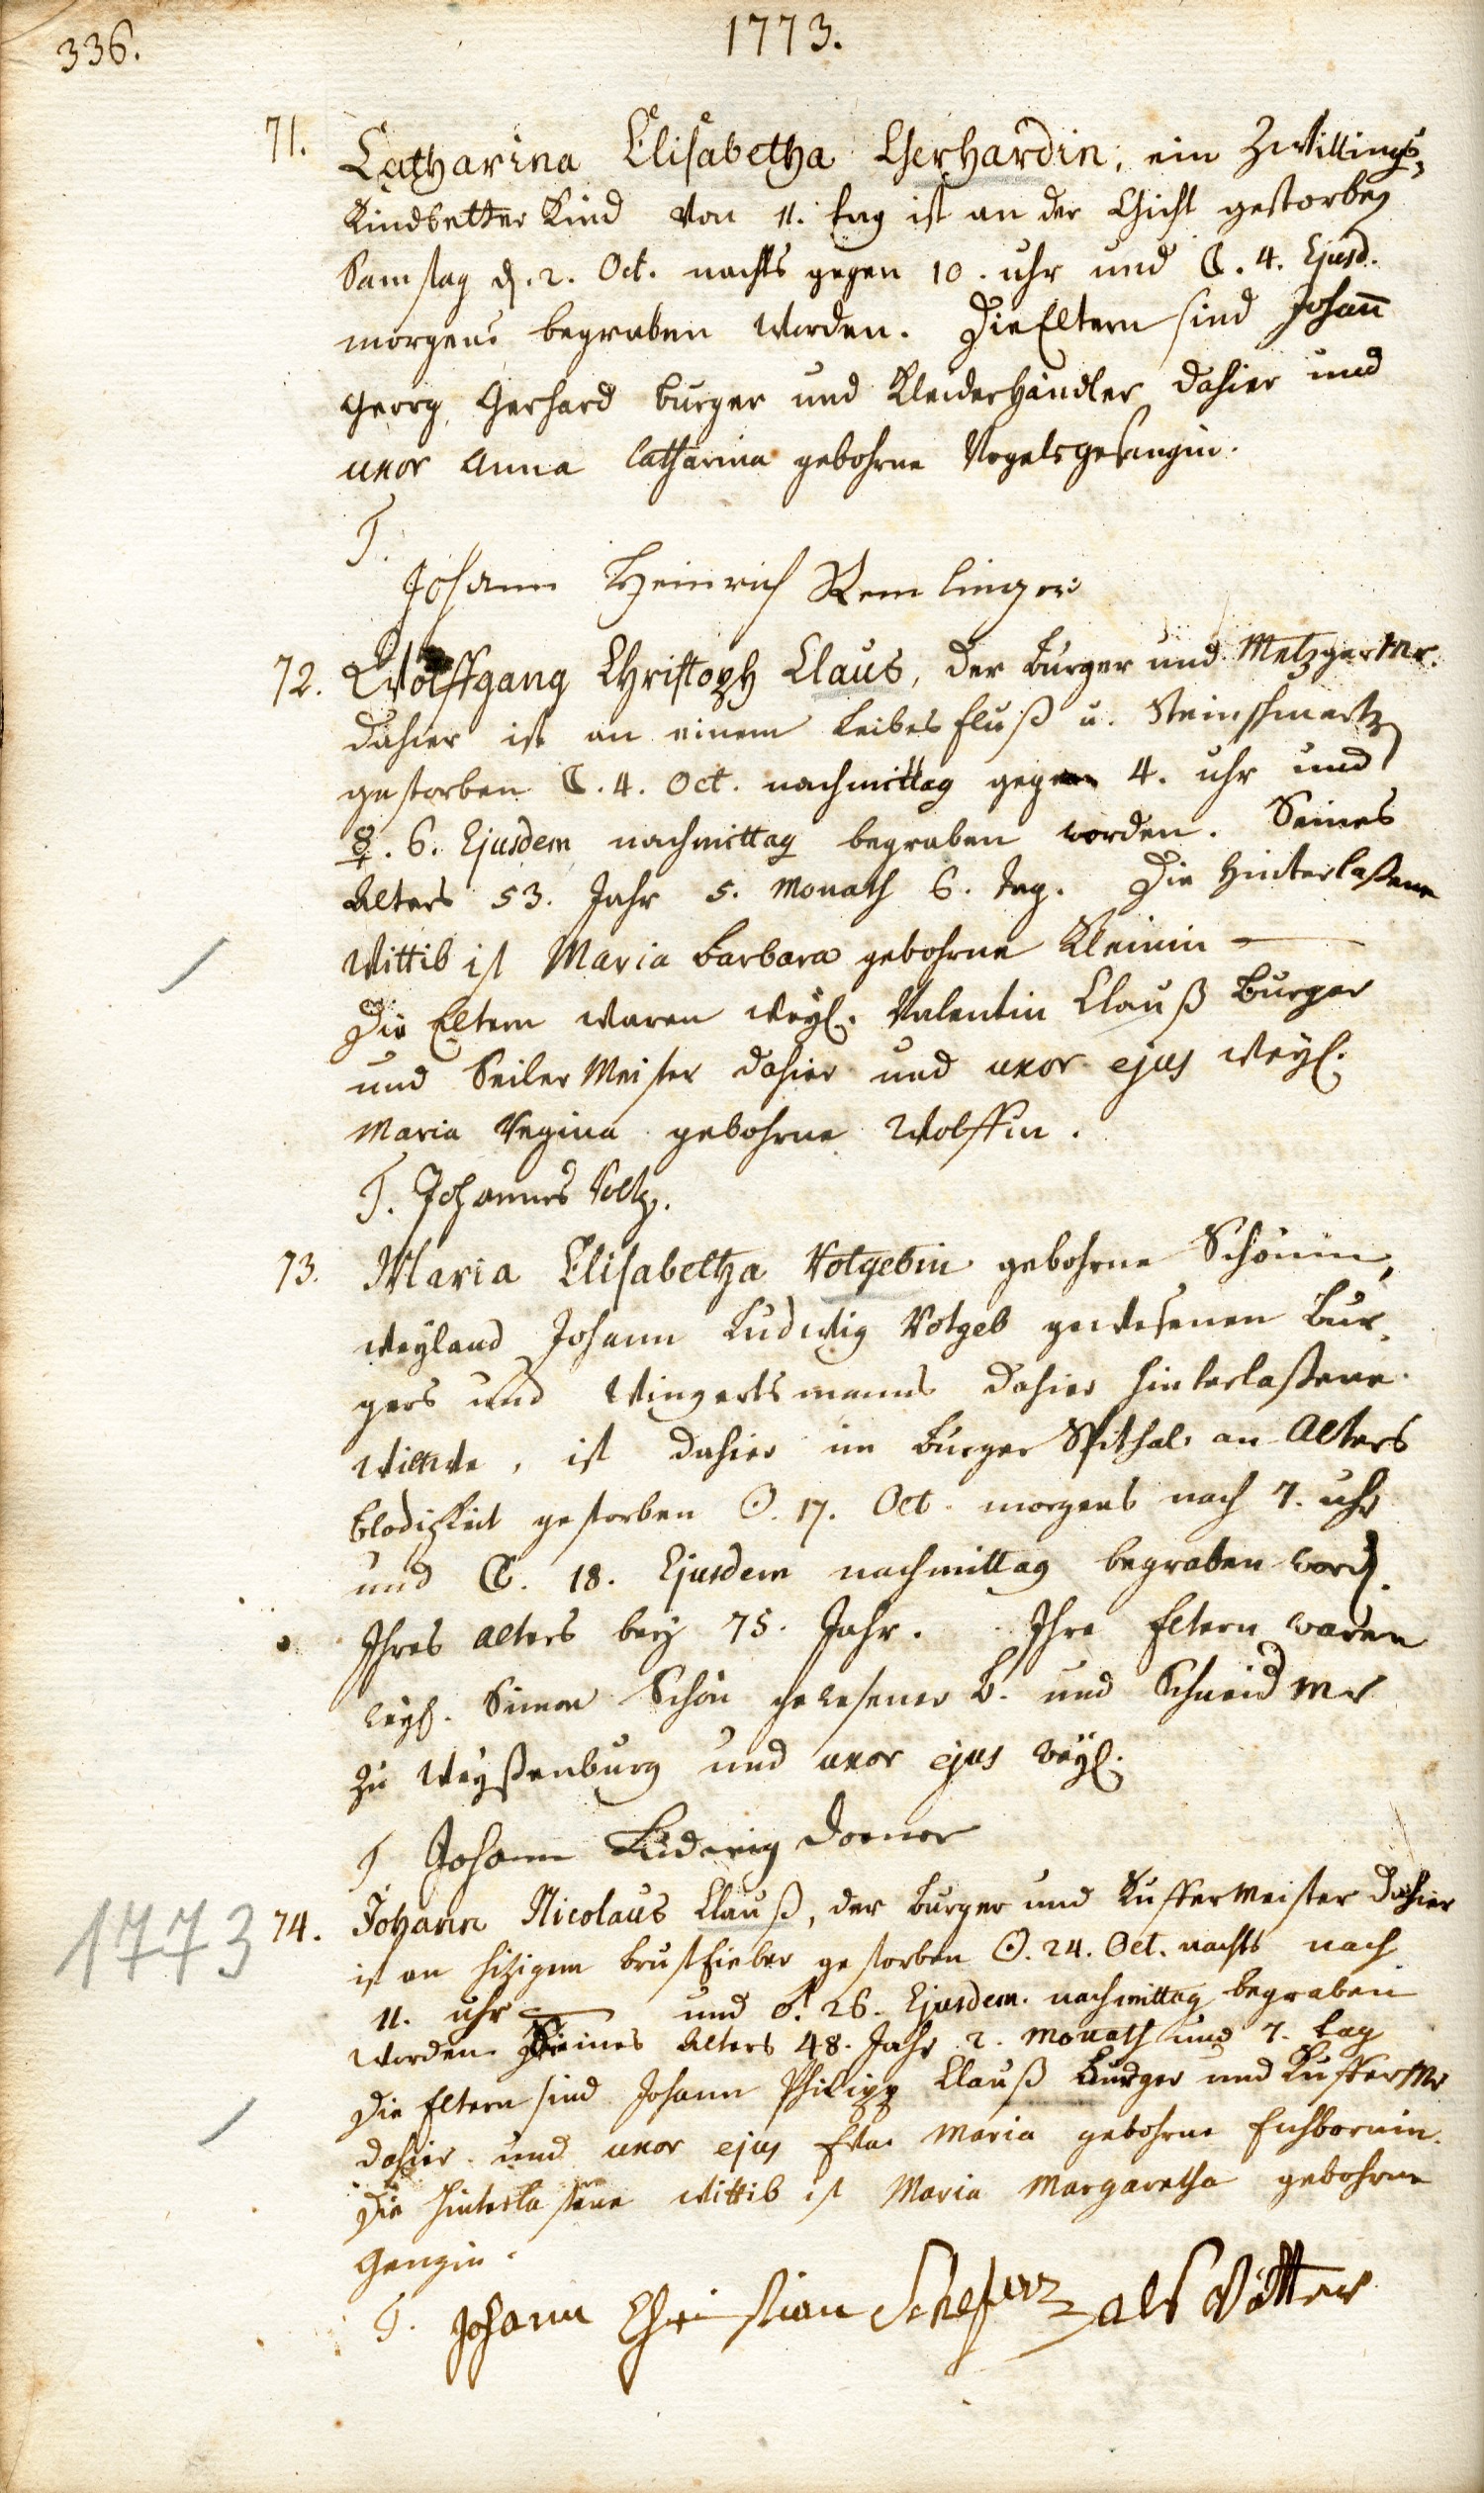 336.
1773.
71. Catharina Elisabetha Gerhardin, ein Zwillings-
Kindbetter Kind von 11. tag ist an der Gicht gestorben
Samstag d. 2. Oct. nachts gegen 10. uhr und ☾. 4. Ejusd.
morgens begraben worden. Die Eltern sind Johann̄
Georg Gerhard burger und Kleiderhändler dahier und
uxor Anna Catharina gebohrne Vogelsgesangin.
T.
Johann Heinrich Remlinger
72. Wolffgang Christoph Claus, der burger und Metzger Mr.
dahier ist an einem Leibes fluß u. Steinschmertz
gestorben ☾. 4. Oct. nachmittag gegen 4. uhr und
☿. 6. Ejusdem nachmittag begraben worden. Seines
Alters 53. Jahr 5. Monath 6. tag. Die hinterlaßene
Wittib ist Maria Barbara gebohrne Kleinin
Die Eltern waren weyl. Valentin Clauß burger
und Seiler Meister dahier und uxor ejus weyl.
Maria Regina gebohrne Wolffin.
T. Johannes Voltz.
73. Maria Elisabetha Rotgebin gebohrne Schönin,
weyland Johann Ludwig Rotgeb gewesenen bur-
gers und Wingertsmanns dahier hinterlaßene
Wittwe, ist dahier im burger Spithal an Alters
blodigkeit gestorben ☉. 17. Oct. morgens nach 7. uhr
und ☾. 18. Ejusdem nachmittag begraben word.
Ihres alters bey 75. Jahr. Ihre Eltern waren
weyl. Simon Schön gewesener b. und Schneid Mr
zu Weyßenburg und uxor ejus weyl.
T. Johann Ludwig
1773
74. Johann Nicolaus Clauß, der burger und Kuffermeister dahier
ist an hizigem brustfieber gestorben ☉. 24. Oct. nachts nach
11. uhr und ♂. 26. Ejusdem. nachmittag begraben
worden Seines Alters 48. Jahr 2. Monath und 7. tag
Die Eltern sind Johann Philipp Clauß burger und Kuffer Mr
dahier und uxor ejus Eva Maria gebohrne Eichbornin.
Die hinterlaßene Wittib ist Maria Margaretha gebohrne
T. Johann Christian als Vötter